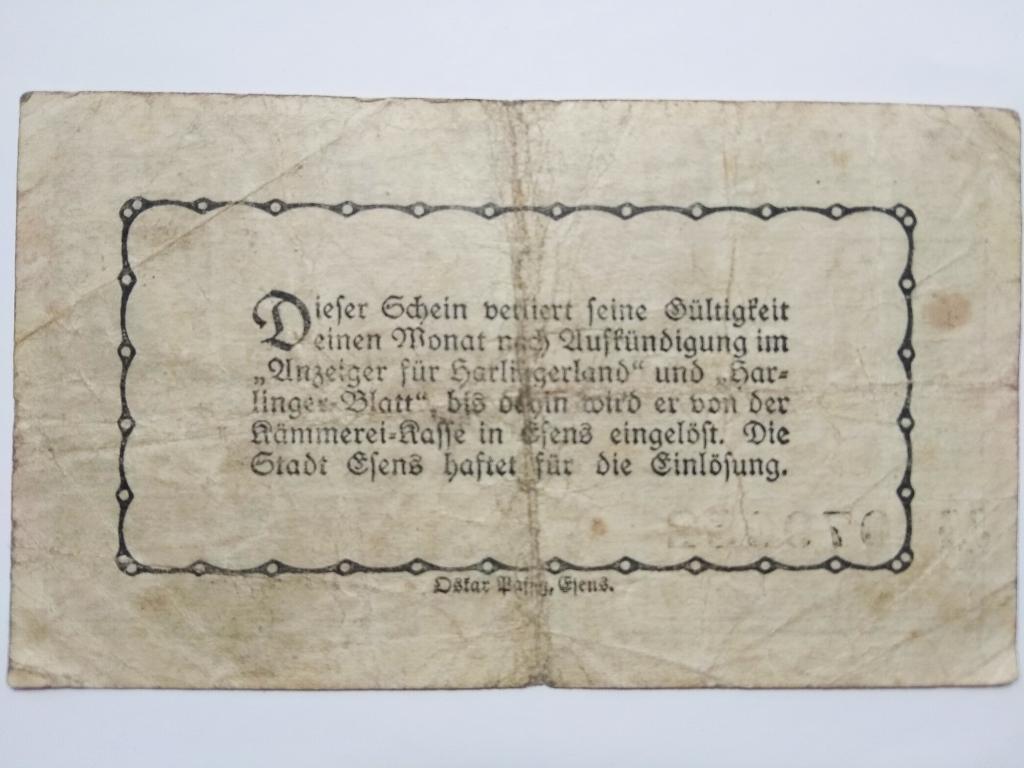 Dieser Schein verliert seine Gültigkeit
einen Monat nach Aufkündigung im
„Anzeiger für Harlingerland“ und „Har-
linger-Blatt“, bis dahin wird er von der
Kämmerei-Kasse in Esens eingelöst. Die
Stadt Esens haftet für die Einlösung.
Oskar Esens.